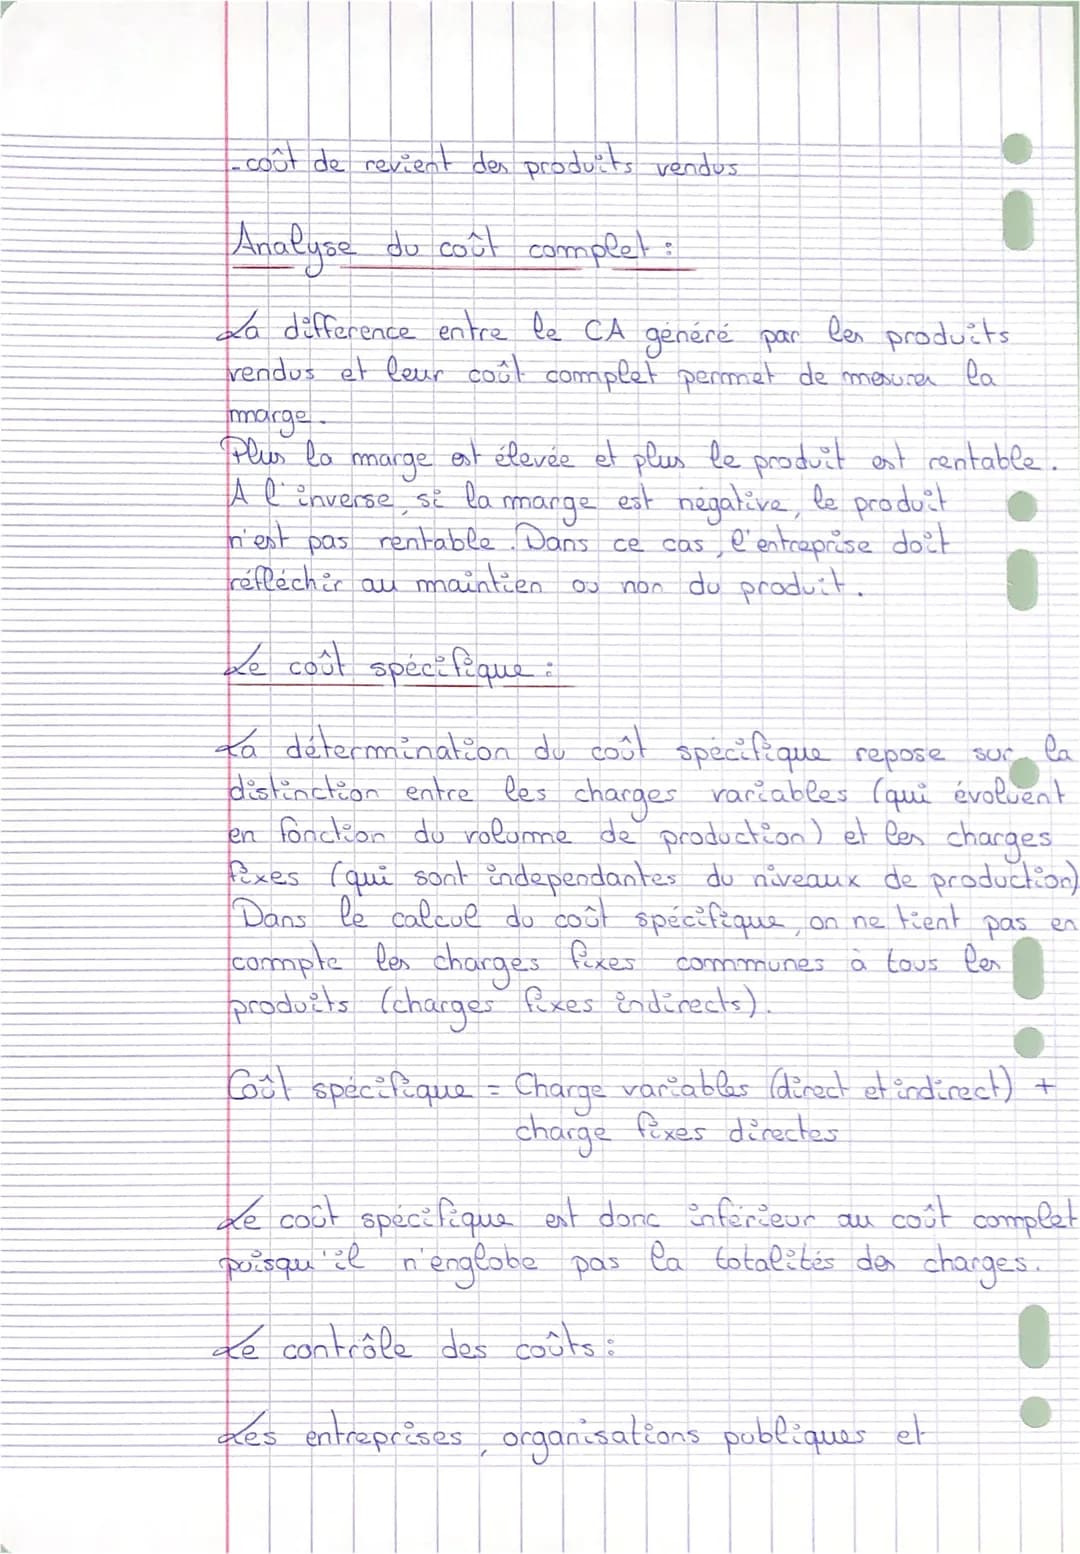 - coût de revient des produits vendus
Analyse du coût complet :
La différence entre le CA généré par les produits
vendus et leur coût complet permet de mesurer la
marge.
Plus la marge est élevée et plus le produit est rentable.
A l'inverse, si la marge est négative, le produit
n'est pas rentable. Dans ce cas, l'entreprise doit
réfléchir au maintien ou non du produit.
Le coût spécifique :
La détermination du coût spécifique repose sur la
distinction entre les charges variables (qui évoluent
en fonction du volume de production) et les charges
fixes (qui sont indépendantes du niveaux de production)
Dans le calcul du coût spécifique, on ne tient pas en
compte les charges fixes communes à tous les
produits (charges fixes indirects).
Coût spécifique = Charge variables (direct et indirect) +
charge fixes directes
Le coût spécifique est donc inférieur au coût complet
puisqu'il n'englobe pas la totalités des charges.
Le contrôle des coûts :
Les entreprises, organisations publiques et